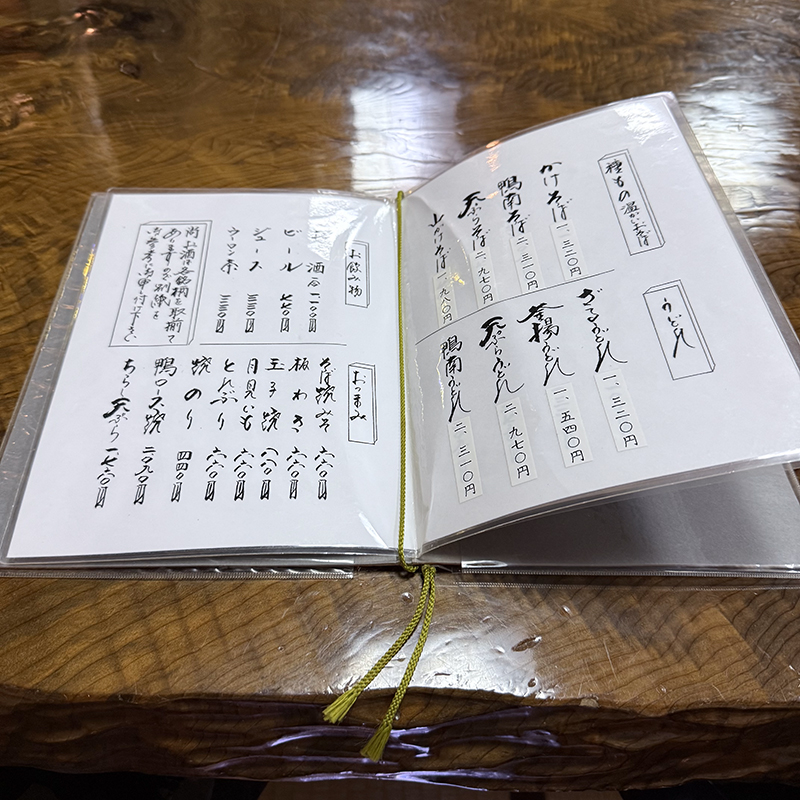 種もの 温かいおそば
かけそば 一、三二〇円
鴨南そば 二、三一〇円
天ぷらそば 二、九七〇円
山かけそば 一、九八〇円
うどん
ざるうどん 一、三二〇円
釜揚うどん 一、五四〇円
天ぷらうどん 二、九七〇円
鴨南うどん 二、三一〇円
お飲み物
お酒 一合 一一〇〇円
ビール 七七〇円
ジュース 三三〇円
ウーロン茶 三三〇円
尚お酒は各銘柄を取揃て
ありますので別紙を
御参考に御申し付け下さい
おつまみ
そば焼みそ 六六〇円
板わさ 六六〇円
玉子焼 八八〇円
月見いも 六六〇円
とんぶり 六六〇円
焼のり 四四〇円
鴨ロース焼 二〇九〇円
天ぷら 一七六〇円